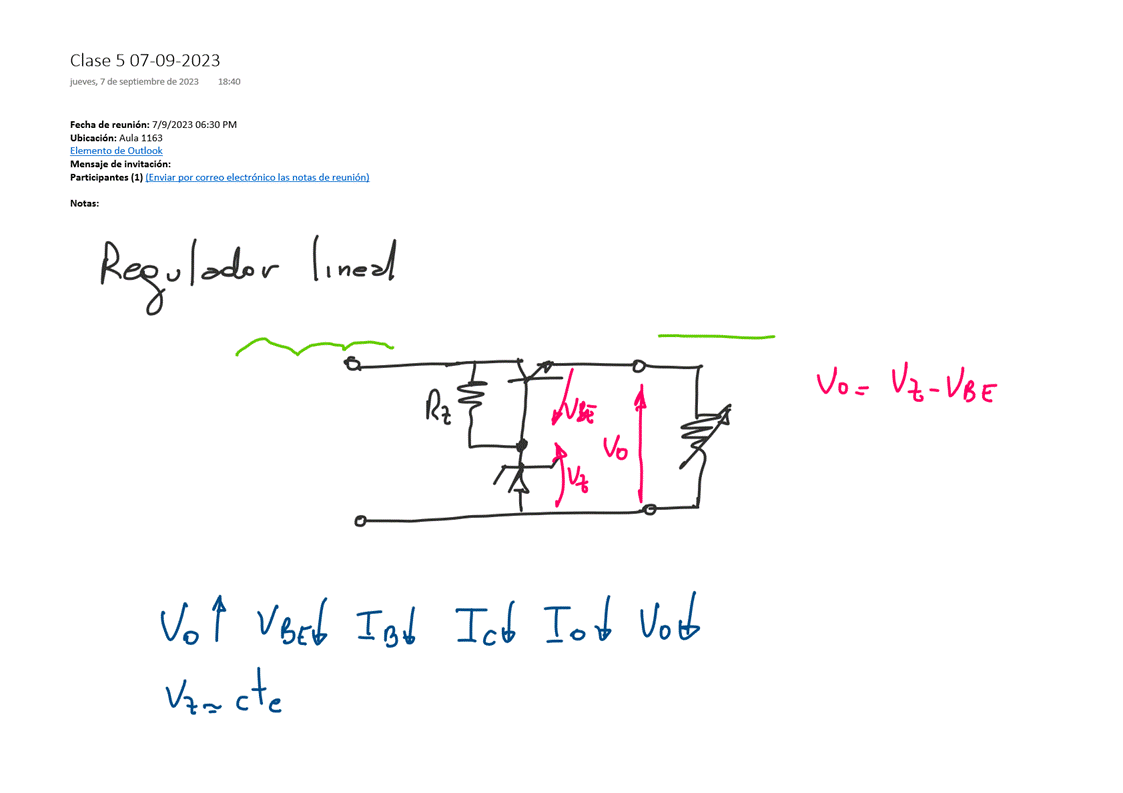 Clase 5 07-09-2023
jueves, 7 de septiembre de 2023 18:40
Fecha de reunión: 7/9/2023 06:30 PM
Ubicación: Aula 1163
Elemento de Outlook
Mensaje de invitación:
Participantes (1) (Enviar por correo electrónico las notas de reunión)
Notas:
Regulador lineal
Rz
VBE
Vo
Vz
Vo = Vz - VBE
Vo↑ VBE↓ IB↓ IC↓ Io↓ Vo↓
Vz ≃ cte